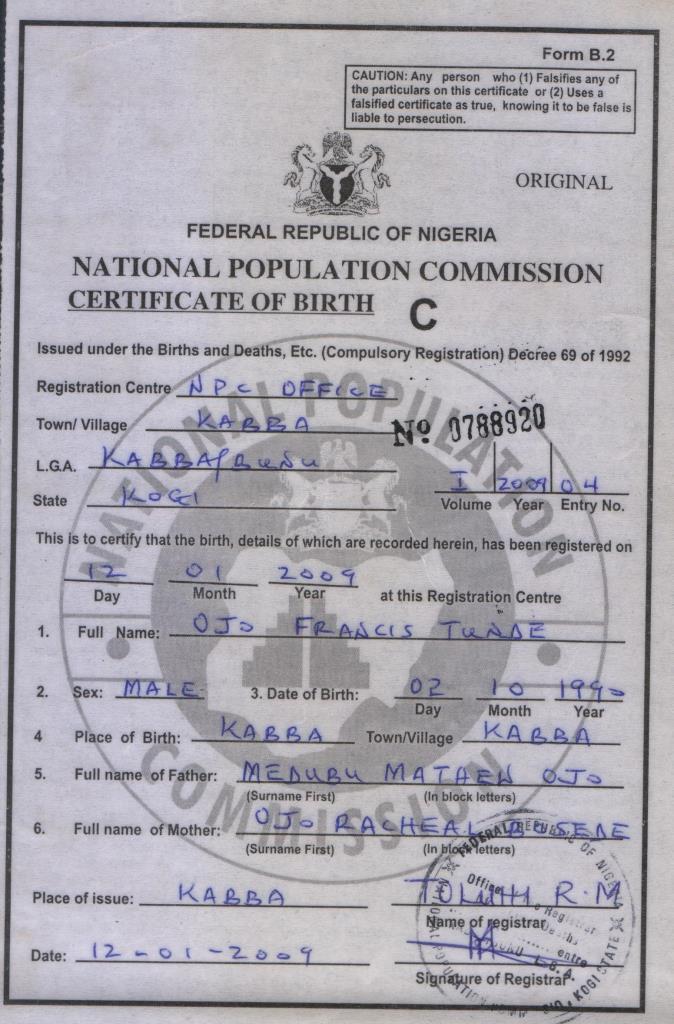 Form B.2
CAUTION: Any person who (1) Falsifies any of
the particulars on this certificate or (2) Uses a
falsified certificate as true, knowing it to be false is
liable to persecution.
ORIGINAL
FEDERAL REPUBLIC OF NIGERIA
NATIONAL POPULATION COMMISSION
CERTIFICATE OF BIRTH C
Issued under the Births and Deaths, Etc. (Compulsory Registration) Decree 69 of 1992
Registration Centre NPC OFFICE
Town/ Village KABBA
Nº 0788920
L.G.A. KABBA/BUNU
State KOGI
I 2009 04
Volume Year Entry No.
This is to certify that the birth, details of which are recorded herein, has been registered on
12 01 2009
Day Month Year at this Registration Centre
1. Full Name: OJO FRANCIS TUNDE
2. Sex: MALE 3. Date of Birth: 02 10 1990
Day Month Year
4 Place of Birth: KABBA Town/Village KABBA
5. Full name of Father: MEDUBU MATHEW OJO
(Surname First) (In block letters)
6. Full name of Mother: OJO RACHEAL BOSEDE
(Surname First) (In block letters)
Place of issue: KABBA R.M
Name of registrar
Date: 12-01-2009
Signature of Registrar
NATIONAL POPULATION
COMMISSION
FEDERAL REPUBLIC OF NIGERIA
KOGI STATE